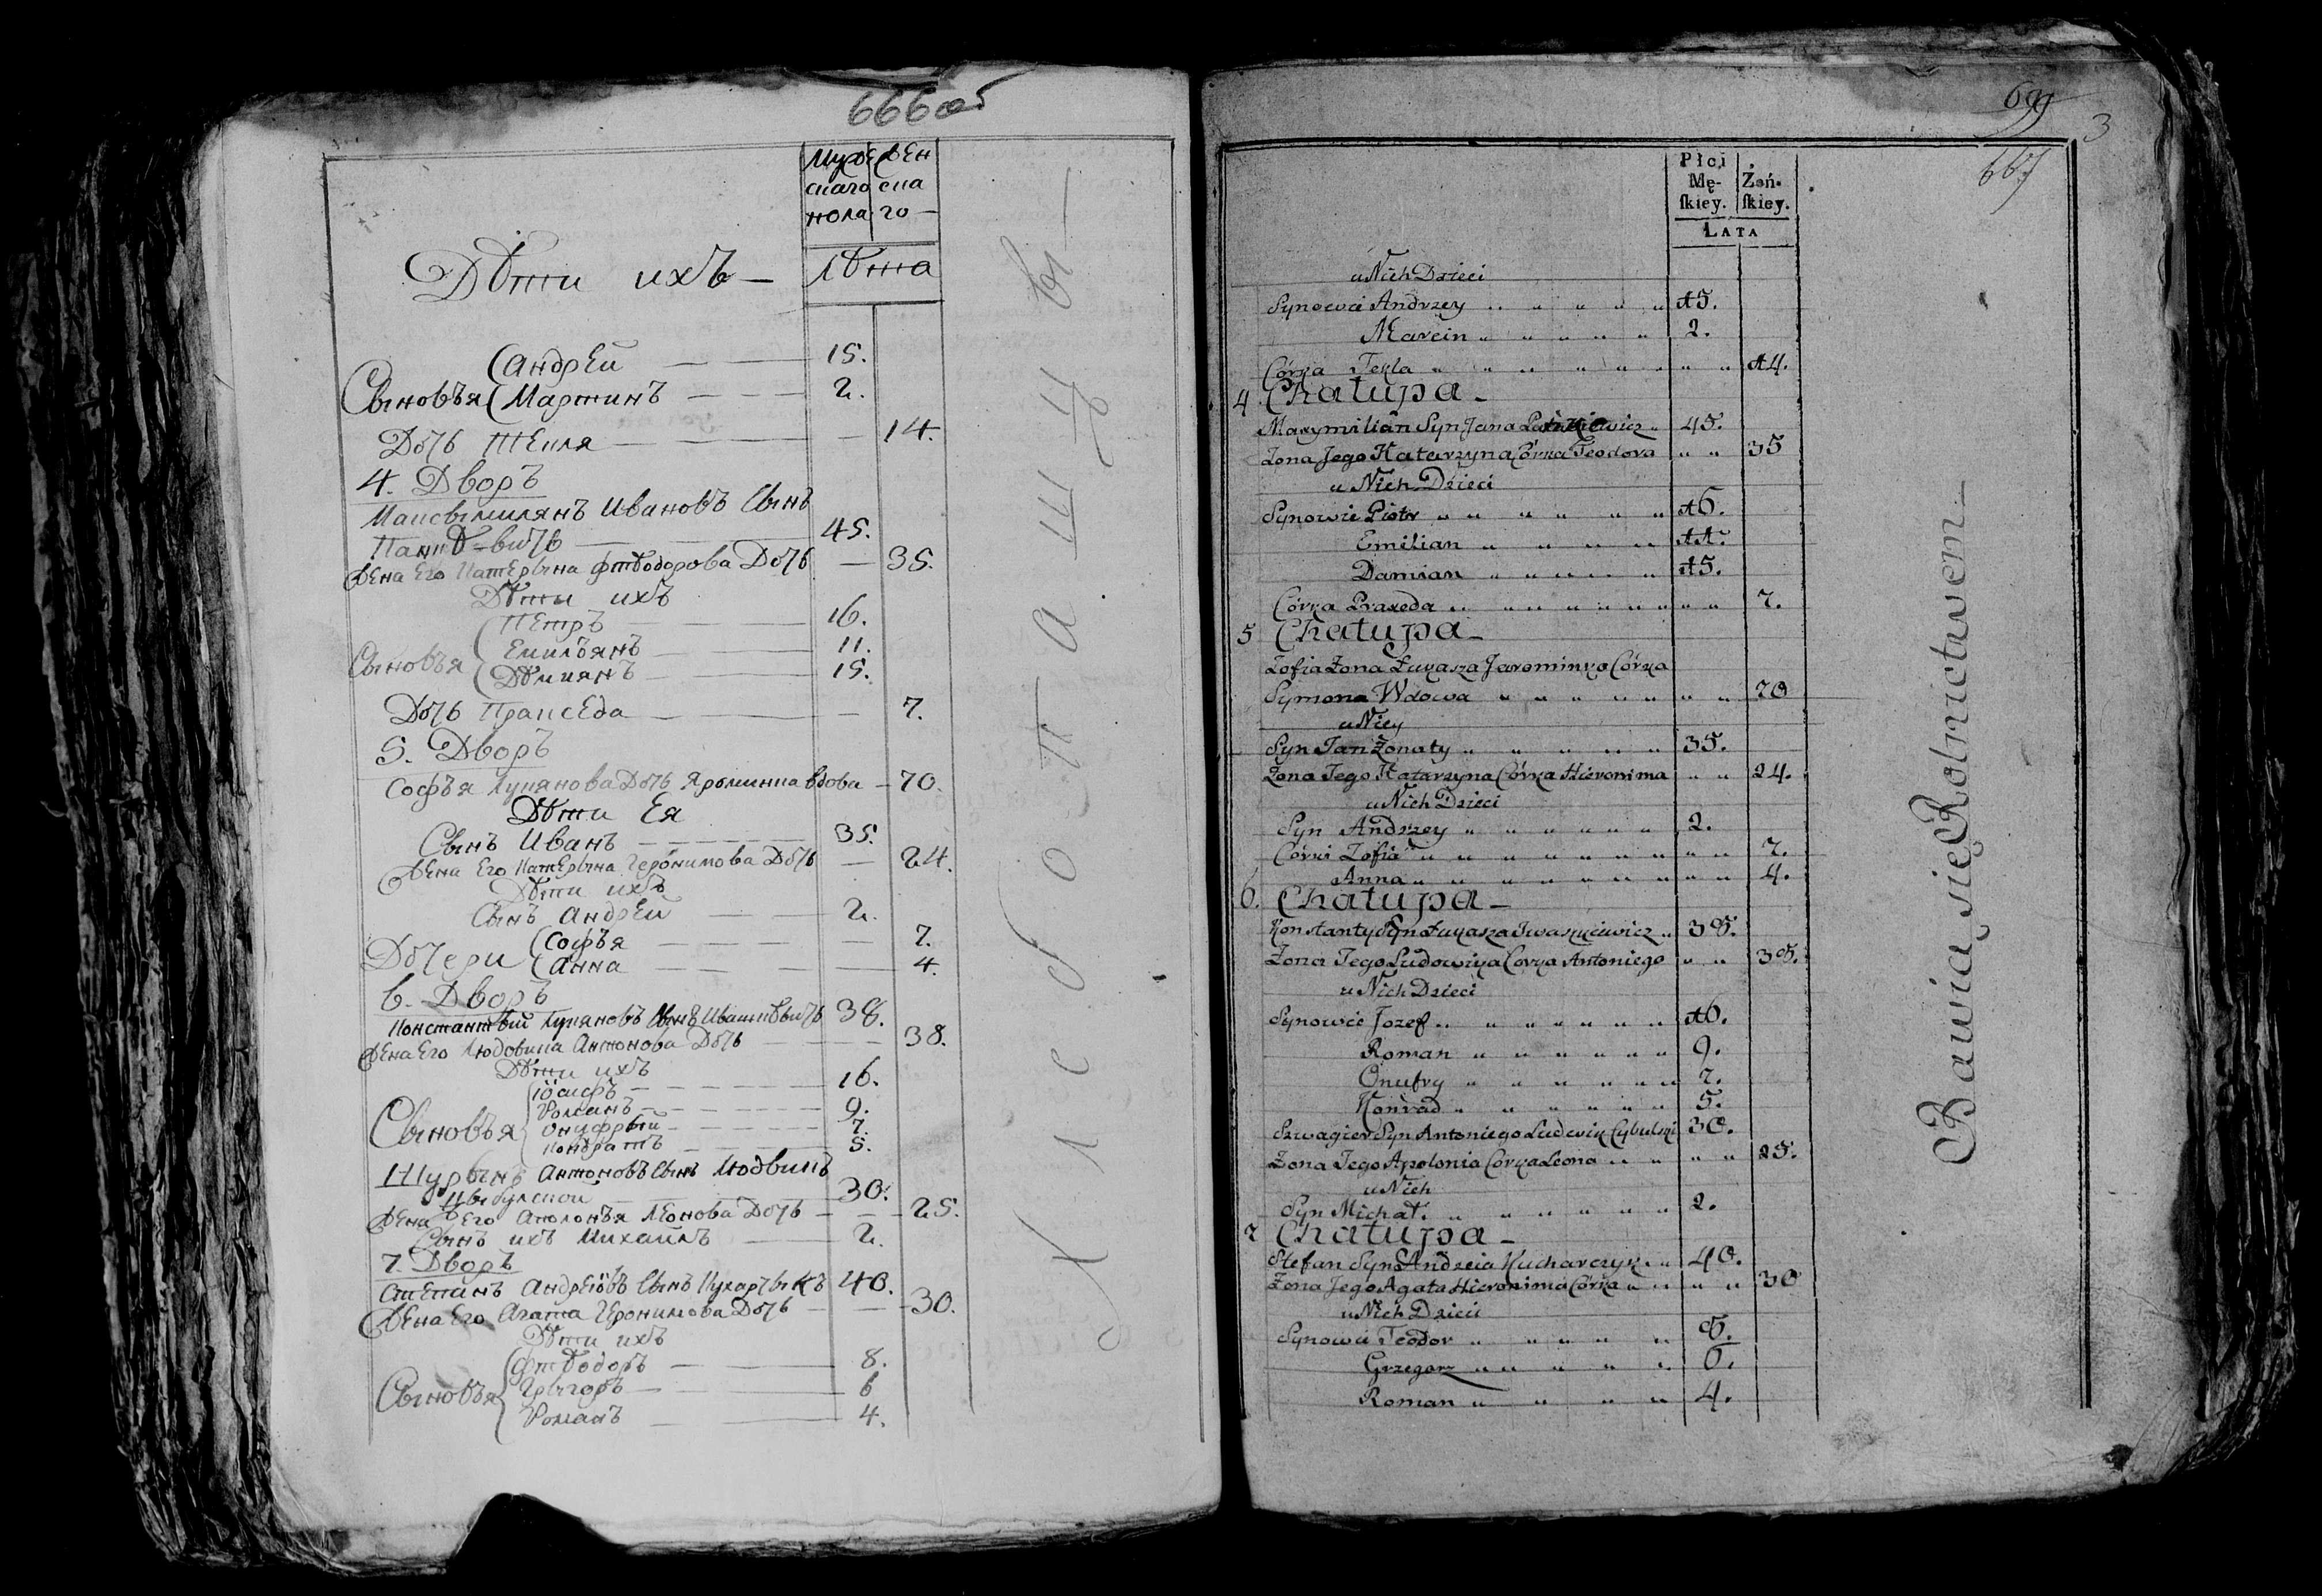 666 об
Мужескаго пола
Женскаго
Лѣта
Дѣти ихъ —
Сыновья
Андрей — 15.
Мартинъ — 2.
Дочь Текля — 14.
4. Дворъ
Максымилянъ Ивановъ Сынъ
45.
Жена Его Катерына Фтѣодорова Дочь — 35.
Дѣти ихъ
Сыновья
Петръ — 16.
Емильянъ — 11.
Дѣмиянъ — 15.
Дочь Пракседа — 7.
5. Дворъ
Софья Лукянова Дочь Яроминка вдова — 70.
Дѣти Ея
Сынъ Иванъ — 35.
Жена Его Катерына Геронимова Дочь — 24.
Дѣти ихъ
Сынъ Андрей — 2.
Дочери
Софья — 7.
Анна — 4.
6. Дворъ
Константый Лукяновъ Сынъ Ивашкѣвичь 38.
Жена Его Людовика Антонова Дочь — 38.
Дѣти ихъ
Сыновья
Іосифъ — 16.
Романъ — 9.
Онуфрый — 7.
Кондратъ — 5.
Шурынъ Антоновъ Сынъ Людвикъ
Цыбулской — 30.
Жена Его Аполонья Леонова Дочь — 25.
Сынъ ихъ Михаилъ — 2.
7. Дворъ
Степанъ Андреевъ Сынъ Кухарчыкъ 40.
Жена Его Агата Геронимова Дочь — 30.
Дѣти ихъ
Сыновья
Фтѣодоръ — 8.
Грыгоръ — 6
Романъ — 4.
Хлебопашцы —
69
3
667
Płci
Mę-
skiey.
Żeń-
skiey.
LATA
u Nich Dzieci
Synowie Andrzey 15.
Marcin 2.
Córka Tekla 14.
4 Chałupa —
Maxymilian Syn Jana 45.
Zona Jego Katarzyna Córka Teodora 35
u Nich Dzieci
Synowie Piotr 16.
Emilian 11.
Damian 15.
Córka Praxeda 7.
5 Chałupa —
Zofia Zona Łukasza Jarominka Córka
Symona Wdowa 70
u Niey
Syn Jan Zonaty 35.
Zona Jego Katarzyna Córka Hieronima 24.
u Nich Dzieci
Syn Andrzey 2.
Córki Zofia 7.
Anna 4.
6. Chałupa —
Konstanty Syn Łukasza Iwaszkiewicz 38.
Zona Jego Ludowika Córka Antoniego 38.
u Nich Dzieci
Synowie Jozef 16.
Roman 9.
Onufry 7.
Konrad 5.
Szwagier Syn Antoniego Ludwik Cybulski 30.
Zona Jego Apolonia Córka Leona 25.
u Nich
Syn Michał 2.
7 Chałupa —
Stefan Syn Andrzeia Kucharczyk 40.
Zona Jego Agata Hieronima Córka 30
u Nich Dzieci
Synowie Teodor 8.
Grzegorz 6.
Roman 4.
Bawią się Rolnictwem —